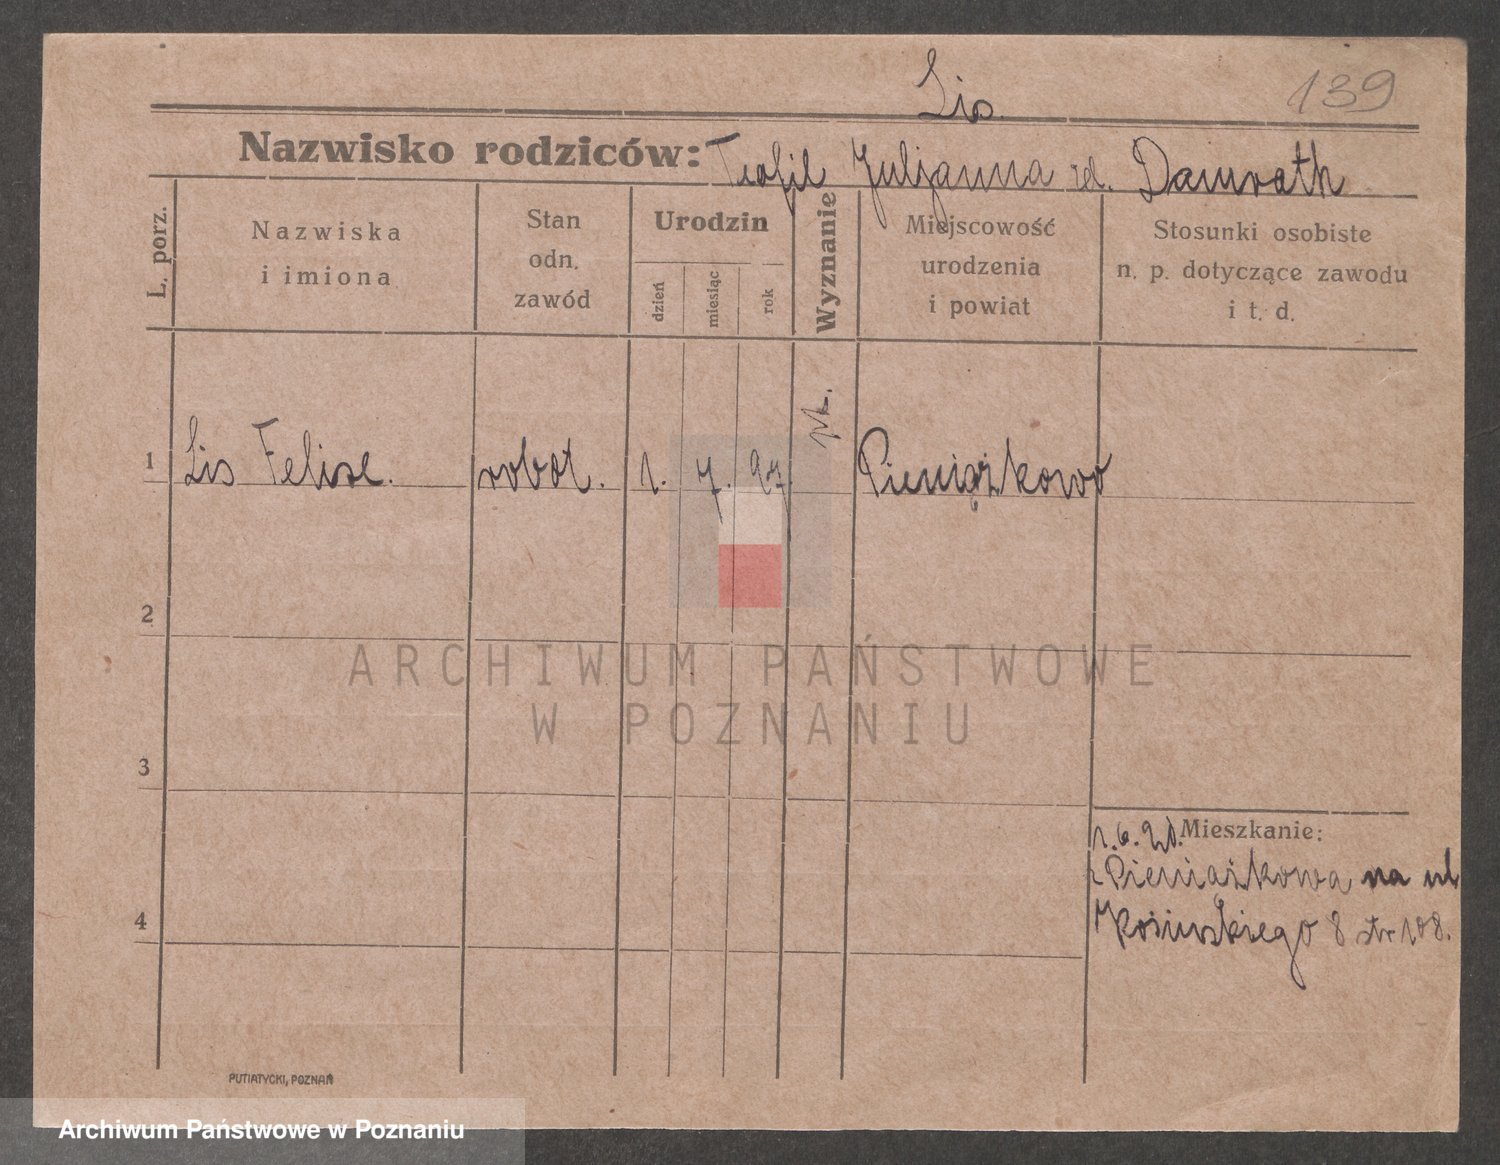 Lis
139
Nazwisko rodziców: Teofil Juljanna zd. Damrath
L. porz.
Nazwiska
i imiona
Stan
odn.
zawód
Urodzin
dzień
miesiąc
rok
Wyznanie
Miejscowość
urodzenia
i powiat
Stosunki osobiste
n. p. dotyczące zawodu
i t. d.
1 Lis Felise. robot. 1. 7. 97. rk. Pieniążkowo
2
3
4
Mieszkanie:
z Pieniążkowa na ul
8 str 108.
PUTIATYCKI, POZNAŃ
ARCHIWUM PAŃSTWOWE
W POZNANIU
Archiwum Państwowe w Poznaniu